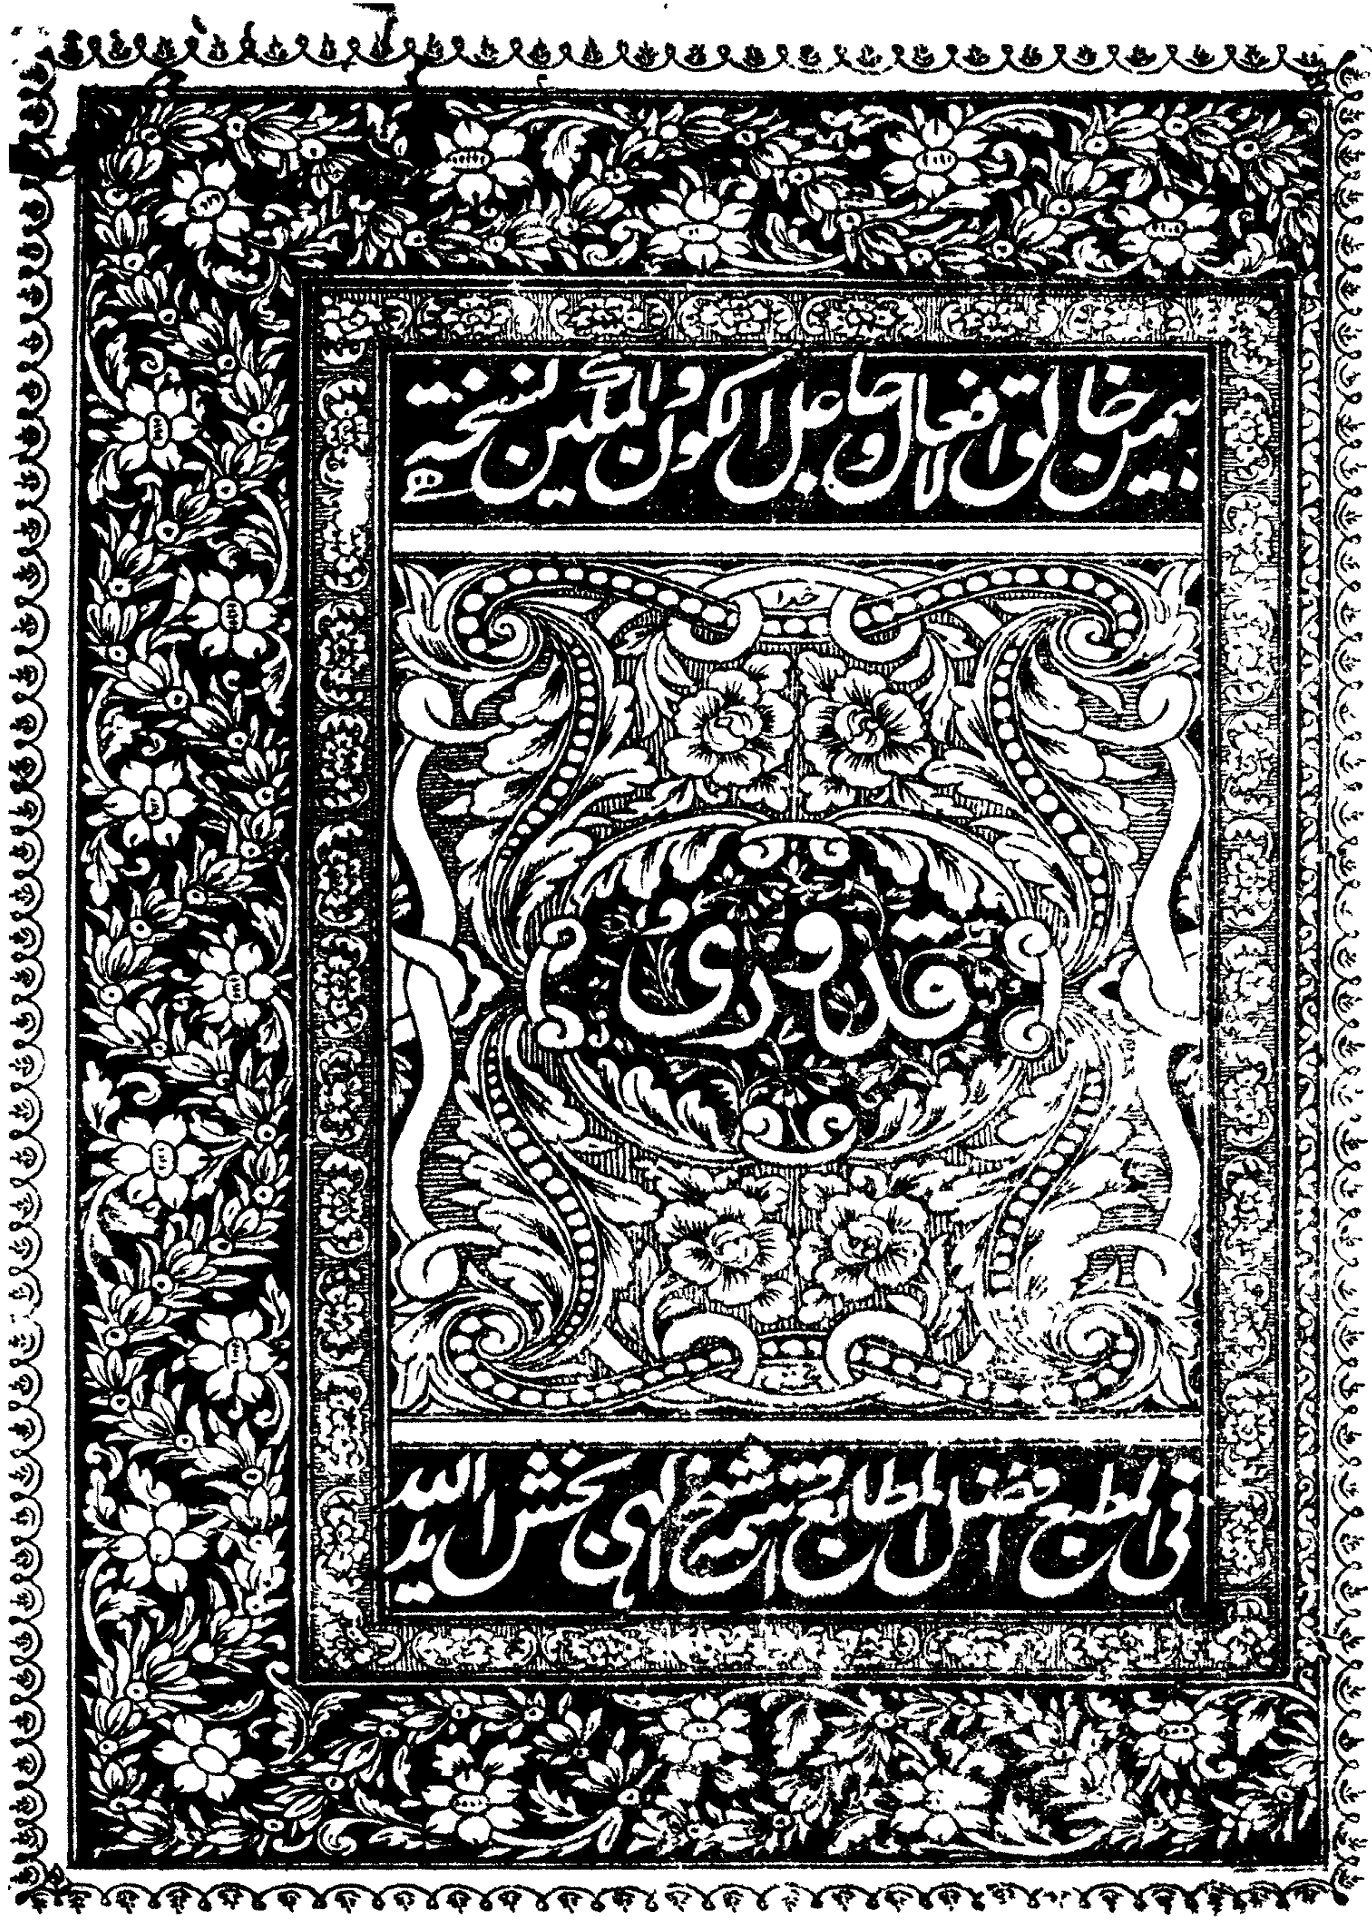 بیمن خالق الافعال و جاعل الکون و المکین نسخه
خدا
قدوری
فی المطبع افضل المطابع شیخ الهی بخش الله